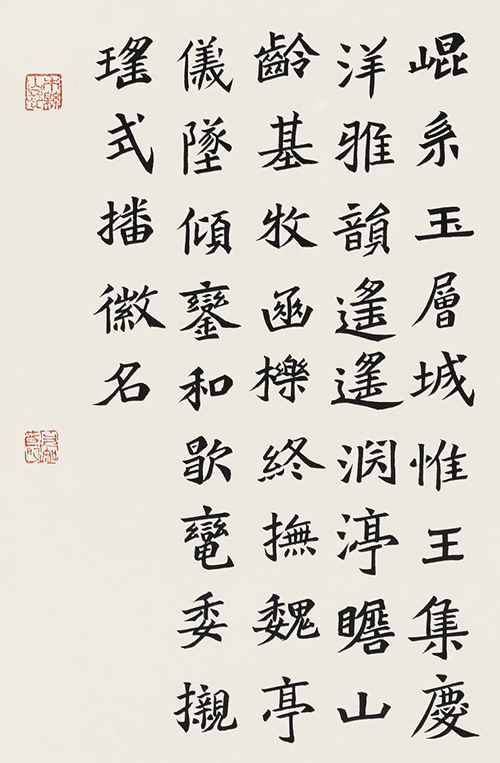 崐系玉層城惟王集慶
洋雅韻遙遙渕渟瞻山
齡基牧函櫟終撫魏亭
儀墜傾鑾和歇委櫬
瑤式播徽名